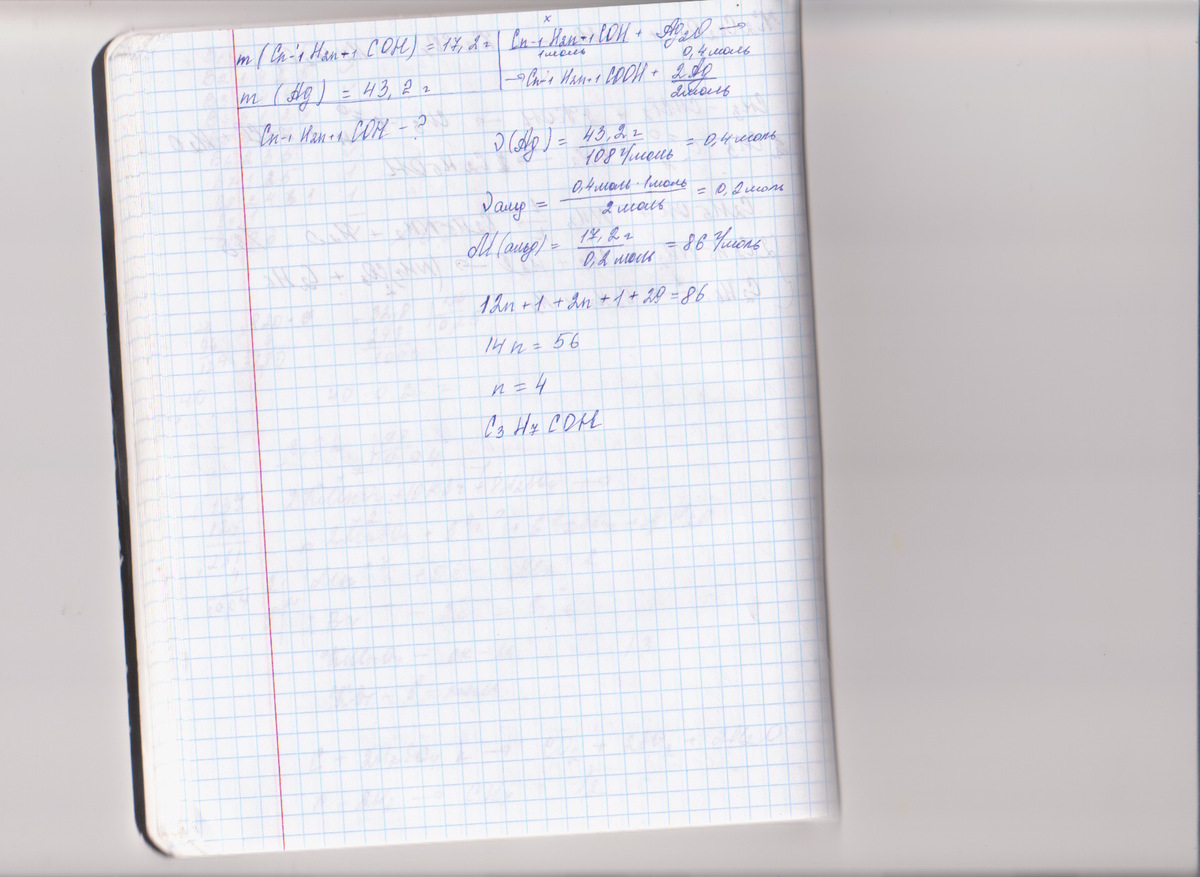 m(Cn-1 H2n+1 COH) = 17,2 г
m (Ag) = 43,2 г
Cn-1 H2n+1 COH - ?
x
Cn-1 H2n+1 COH + Ag2O →
1 моль 0,4 моль
→ Cn-1 H2n+1 COOH + 2Ag
2 моль
ν(Ag) = 43,2 г / 108 г/моль = 0,4 моль
ν альд = 0,4 моль · 1 моль / 2 моль = 0,2 моль
M(альд) = 17,2 г / 0,2 моль = 86 г/моль
12n + 1 + 2n + 1 + 29 = 86
14n = 56
n = 4
C3 H7 COH